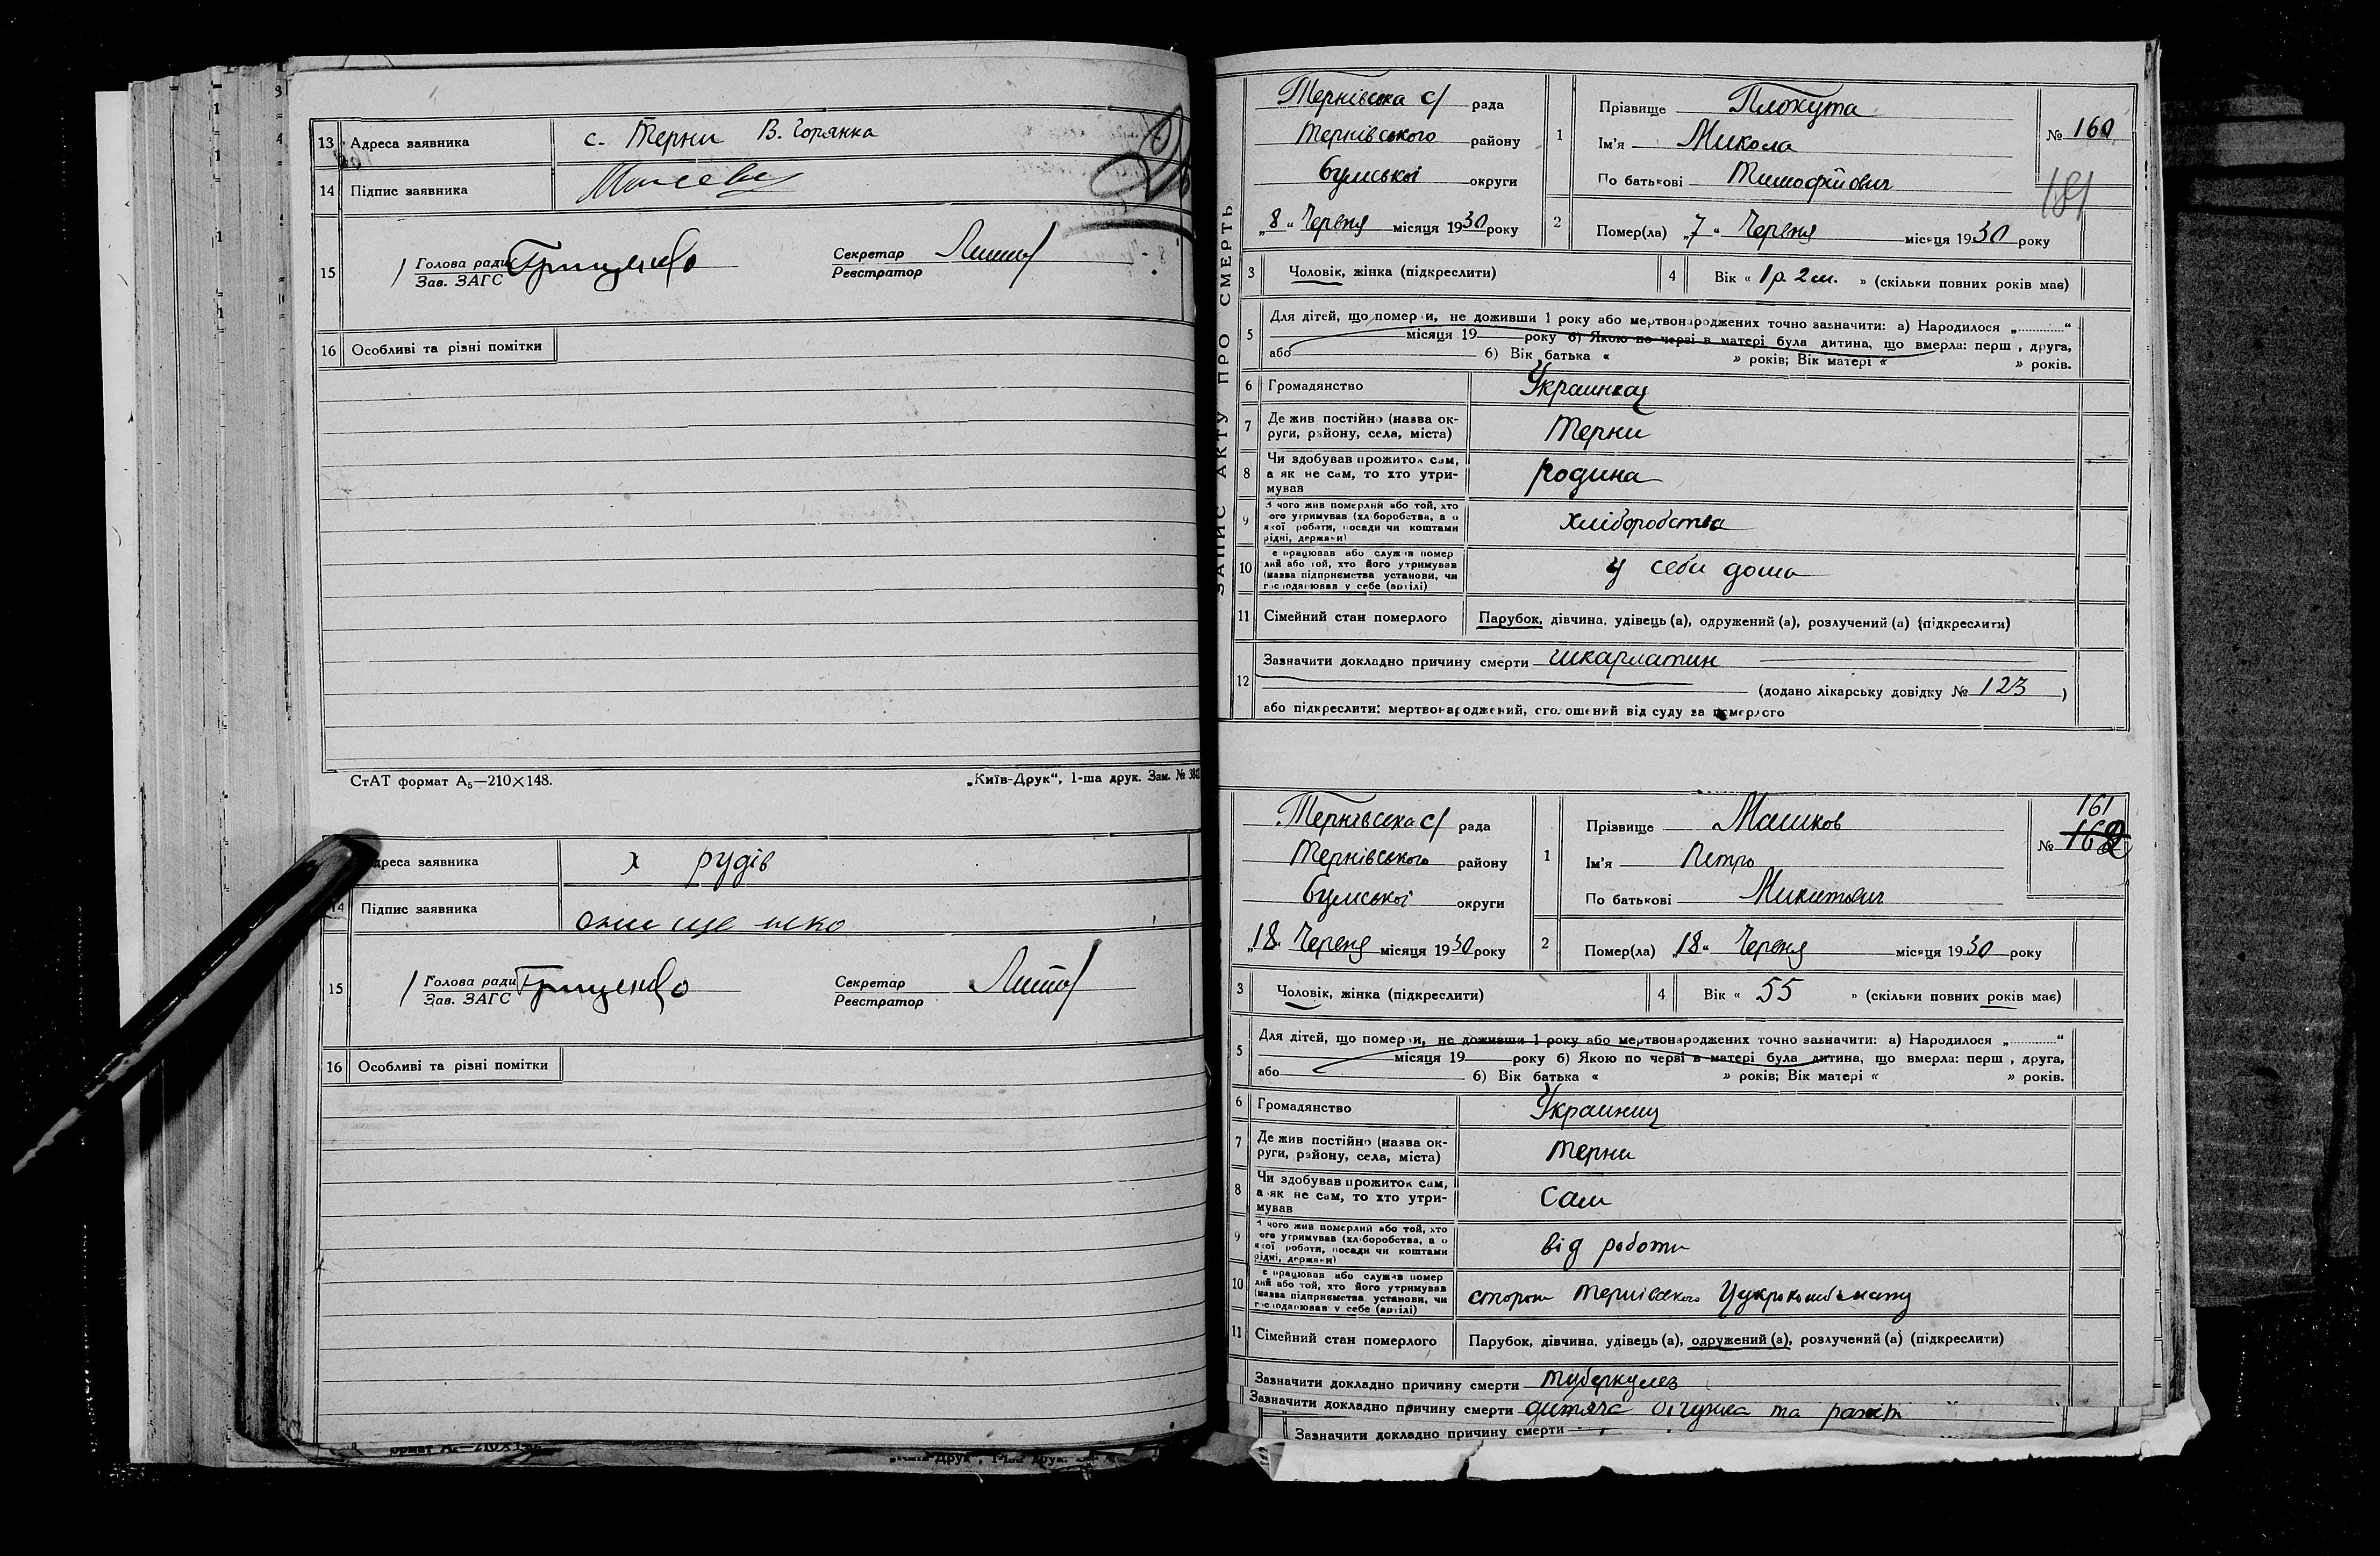 13 Адреса заявника с. Терни В. Горянка
14 Підпис заявника
15 Голова ради Грищенко Секретар
Зав. ЗАГС Реєстратор
16 Особливі та різні помітки
СтАТ формат А₅—210×148. „Київ-Друк“, 1-ша друк. Зам. №
Адреса заявника х рудів
14 Підпис заявника онищенко
15 Голова ради Грищенко Секретар
Зав. ЗАГС Реєстратор
16 Особливі та різні помітки
ЗАПИС АКТУ ПРО СМЕРТЬ
Тернівська с/ рада
Тернівського району
Сумської округи
„8“ Червня місяця 1930 року
1 Прізвище Плокута
Ім'я Микола
По батькові Тимофійович
№ 160
181
2 Помер(ла) „7“ Червня місяця 1930 року
3 Чоловік, жінка (підкреслити) 4 Вік « 1 р. 2 м. » (скільки повних років має)
5 Для дітей, що померли, не доживши 1 року або мертвонароджених точно зазначити: а) Народилося „............“
місяця 19 року б) Якою по черзі в матері була дитина, що вмерла: перш , друга,
або б) Вік батька « » років; Вік матері « » років.
6 Громадянство
7 Де жив постійно (назва ок-
руги, району, села, міста) Терни
8 Чи здобував прожиток сам,
а як не сам, то хто утри-
мував родина
9 З чого жив померлий або той, хто
ого утримував (хліборобства, а о
якої роботи, посади чи коштами
рідні, держави) хліборобства
10 е працював або служив помер
лий або той, хто його утримував
(назва підприємства установи, чи
господарював у себе (артілі) у себи дома
11 Сімейний стан померлого Парубок, дівчина, удівець (а), одружений (а), розлучений (а) (підкреслити)
12 Зазначити докладно причину смерти шкарлатин
(додано лікарську довідку № 123 )
або підкреслити: мертвонароджений, оголошений від суду за померлого
Тернівська с/ рада
Тернівського району
Сумської округи
„18“ Червня місяця 1930 року
1 Прізвище Машков
Ім'я Петро
По батькові Микитович
161
№ 162
2 Помер(ла) „18“ Червня місяця 1930 року
3 Чоловік, жінка (підкреслити) 4 Вік « 55 » (скільки повних років має)
5 Для дітей, що померли, не доживши 1 року або мертвонароджених точно зазначити: а) Народилося „............“
місяця 19 року б) Якою по черзі в матері була дитина, що вмерла: перш , друга,
або б) Вік батька « » років; Вік матері « » років.
6 Громадянство
7 Де жив постійно (назва ок-
руги, району, села, міста) Терни
8 Чи здобував прожиток сам,
а як не сам, то хто утри-
мував Сам
9 З чого жив померлий або той, хто
ого утримував (хліборобства, а о
якої роботи, посади чи коштами
рідні, держави) від роботи
10 е працював або служив помер
лий або той, хто його утримував
(назва підприємства установи, чи
господарював у себе (артілі) сторож Тернівського Цукрокомбінату
11 Сімейний стан померлого Парубок, дівчина, удівець (а), одружений (а), розлучений (а) (підкреслити)
Зазначити докладно причину смерти туберкулез
Зазначити докладно причину смерти дитяча бігунка та рахіт
Зазначити докладно причину смерти